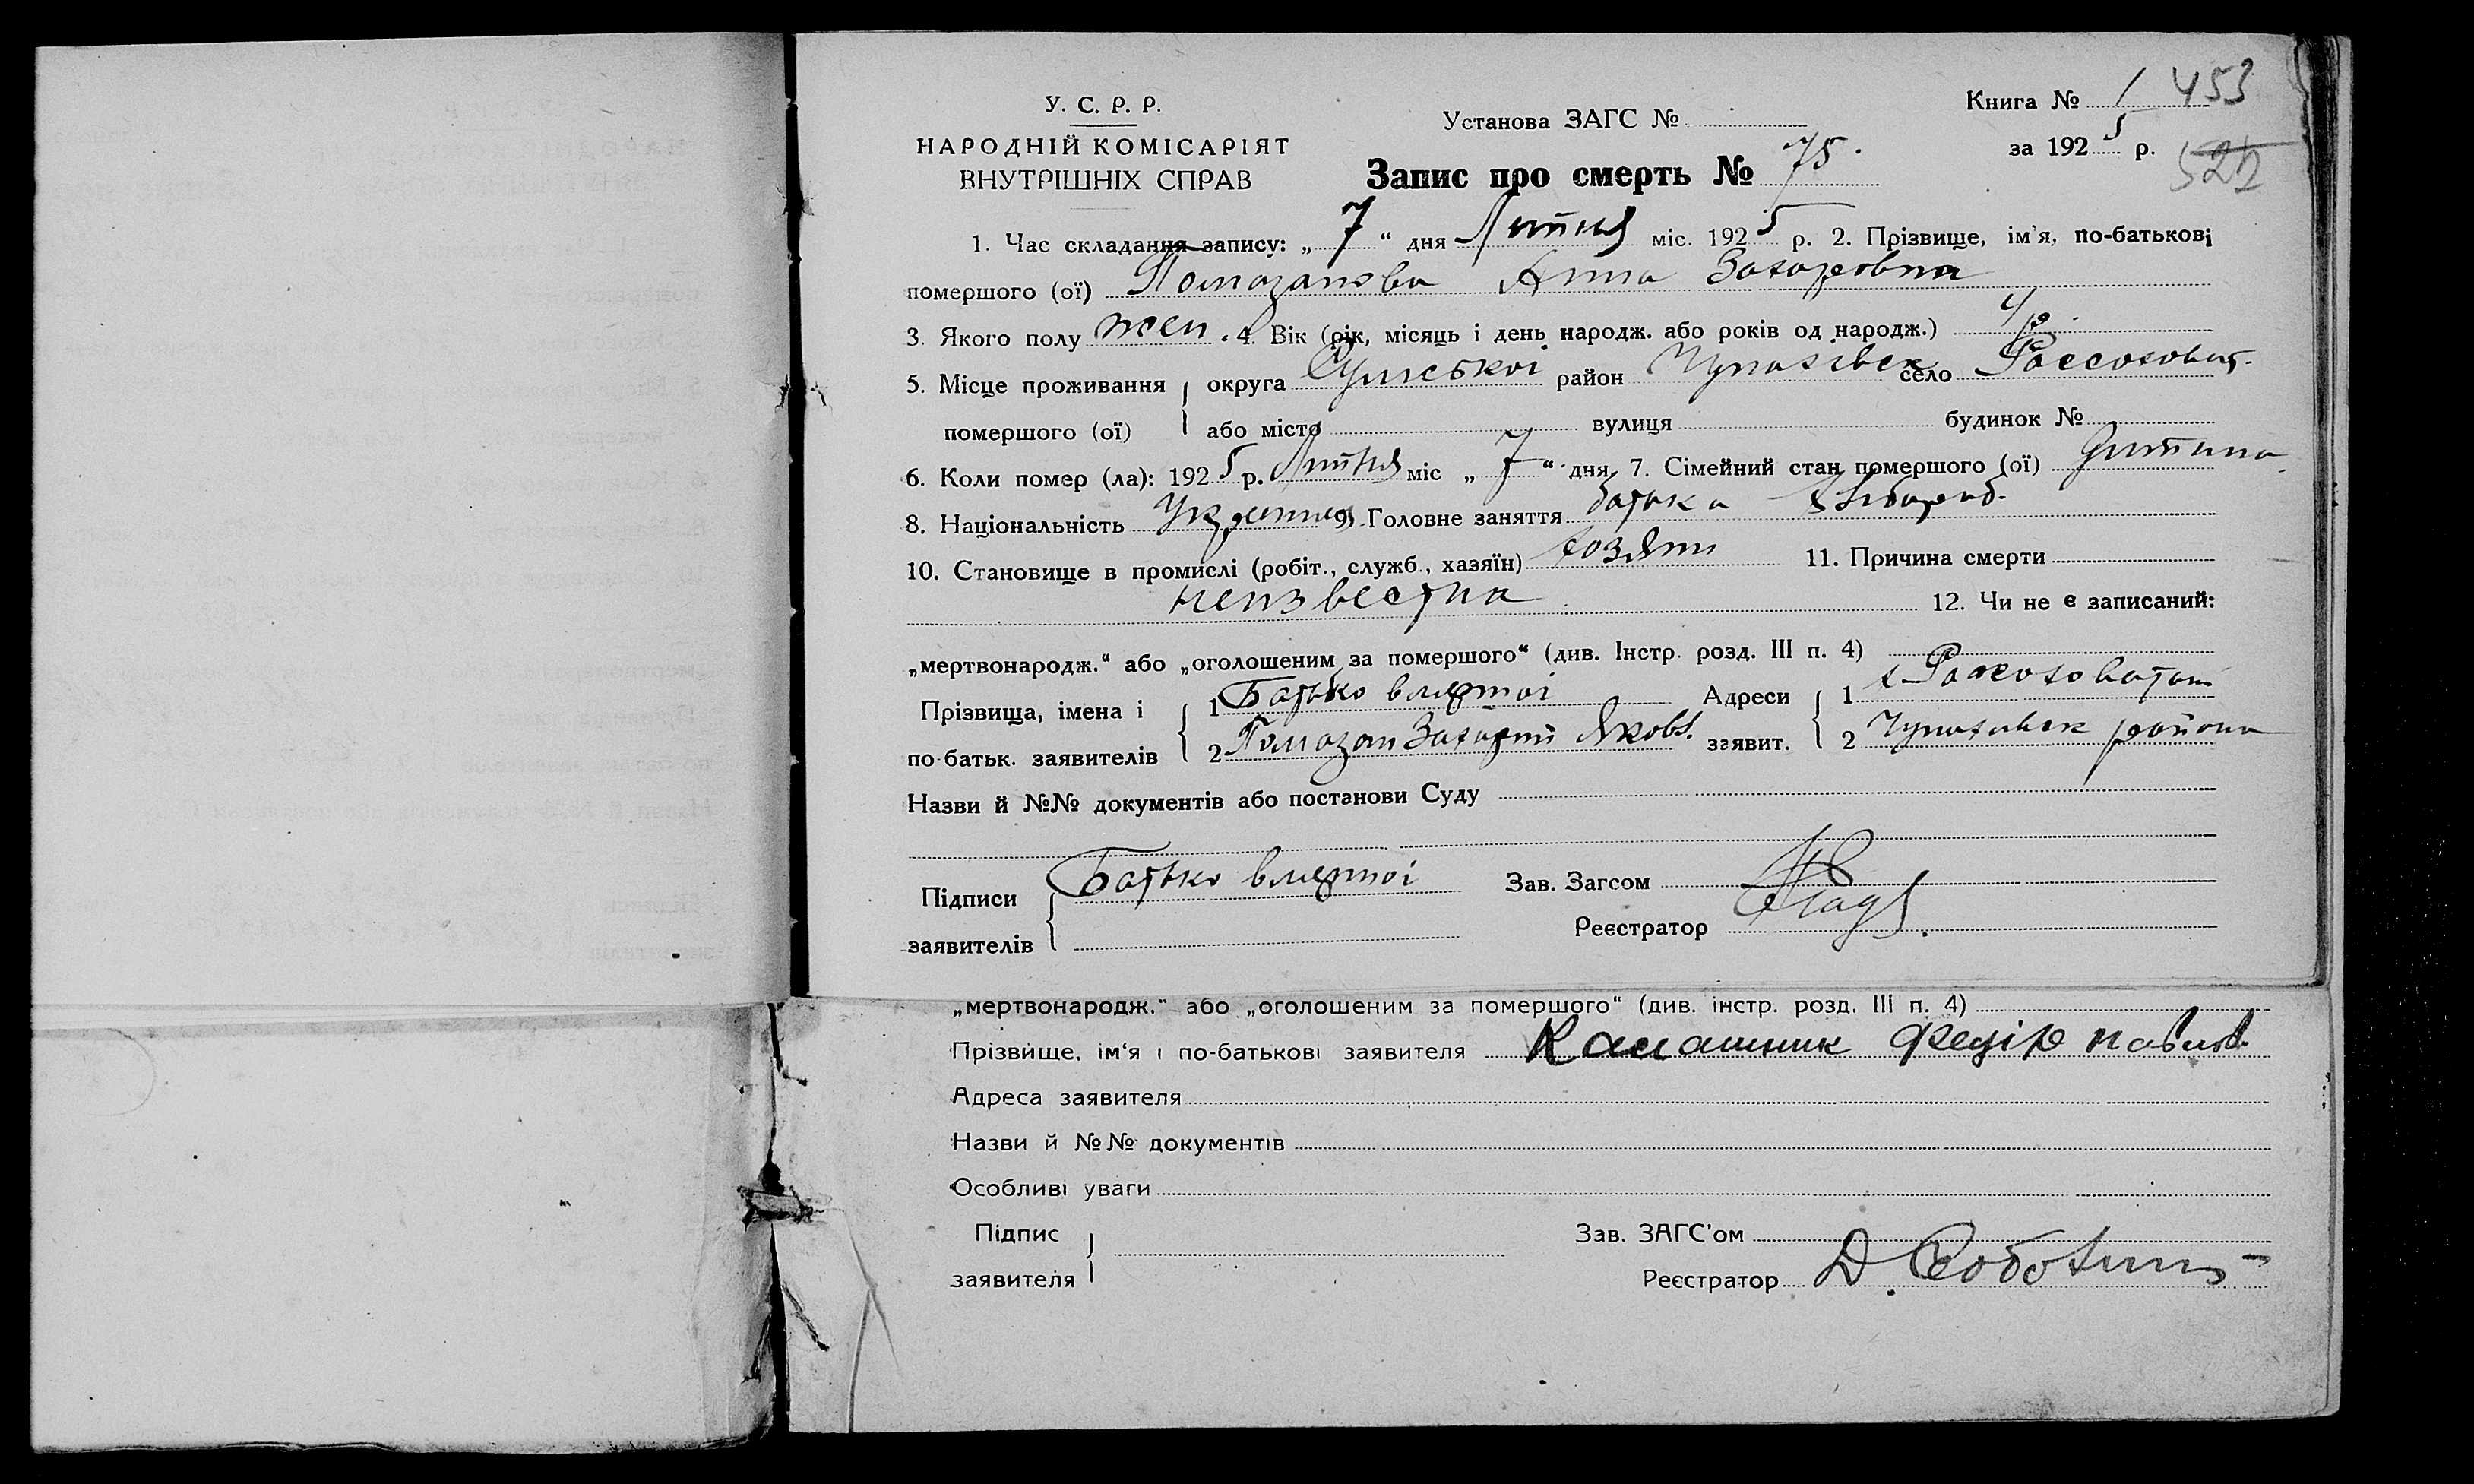 У. С. Р. Р.
НАРОДНІЙ КОМІСАРІЯТ
ВНУТРІШНІХ СПРАВ
Установа ЗАГС №
Книга № 1 453
за 1925 р. 522
Запис про смерть № 75.
1. Час складання запису: „7“ дня Липня міс. 1925 р. 2. Прізвище, ім'я, по-батькові
помершого (ої) Помазанова Анна Захаровна
3. Якого полу жен. 4. Вік (рік, місяць і день народж. або років од народж.)
5. Місце проживання округа Сумської район Чупахівск село
помершого (ої) або місто вулиця будинок №
6. Коли помер (ла): 1925 р. Липня міс „7“ дня, 7. Сімейний стан помершого (ої) дитина
8. Національність 9. Головне заняття батька хлібороб.
10. Становище в промислі (робіт., служб., хазяїн) хозяин 11. Причина смерти
неизвестна 12. Чи не є записаний:
„мертвонародж.“ або „оголошеним за помершого“ (див. Інстр. розд. III п. 4)
Прізвища, імена і 1 Батько вмершої Адреси 1
по-батьк. заявителів 2 Помазан Захарий Яковл. заявит. 2 Чупахивск района
Назви й №№ документів або постанови Суду
Підписи Батько вмершої Зав. Загсом
заявителів Реєстратор
„мертвонародж.“ або „оголошеним за помершого“ (див. інстр. розд. III п. 4)
Прізвище, ім'я і по-батькові заявителя Калашник Федір Павлов.
Адреса заявителя
Назви й №№ документів
Особливі уваги
Підпис Зав. ЗАГС'ом
заявителя Реєстратор Д